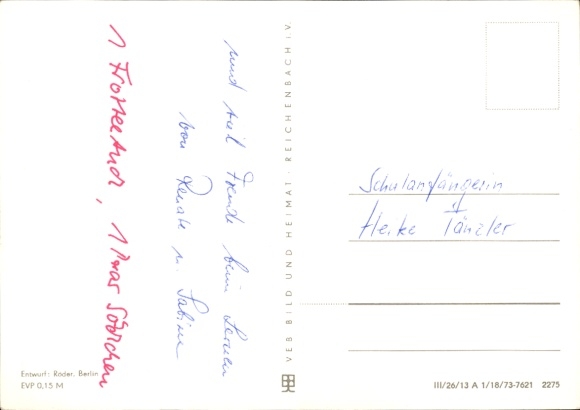 und viel Freude beim Lernen
von Renate u. Sabine
1 Frotteetuch, 1 Paar Söckchen
VEB BILD UND HEIMAT · REICHENBACH i.V.
Schulanfängerin
Heike Tänzler
Entwurf: Röder, Berlin
EVP 0,15 M
III/26/13 A 1/18/73-7621 2275